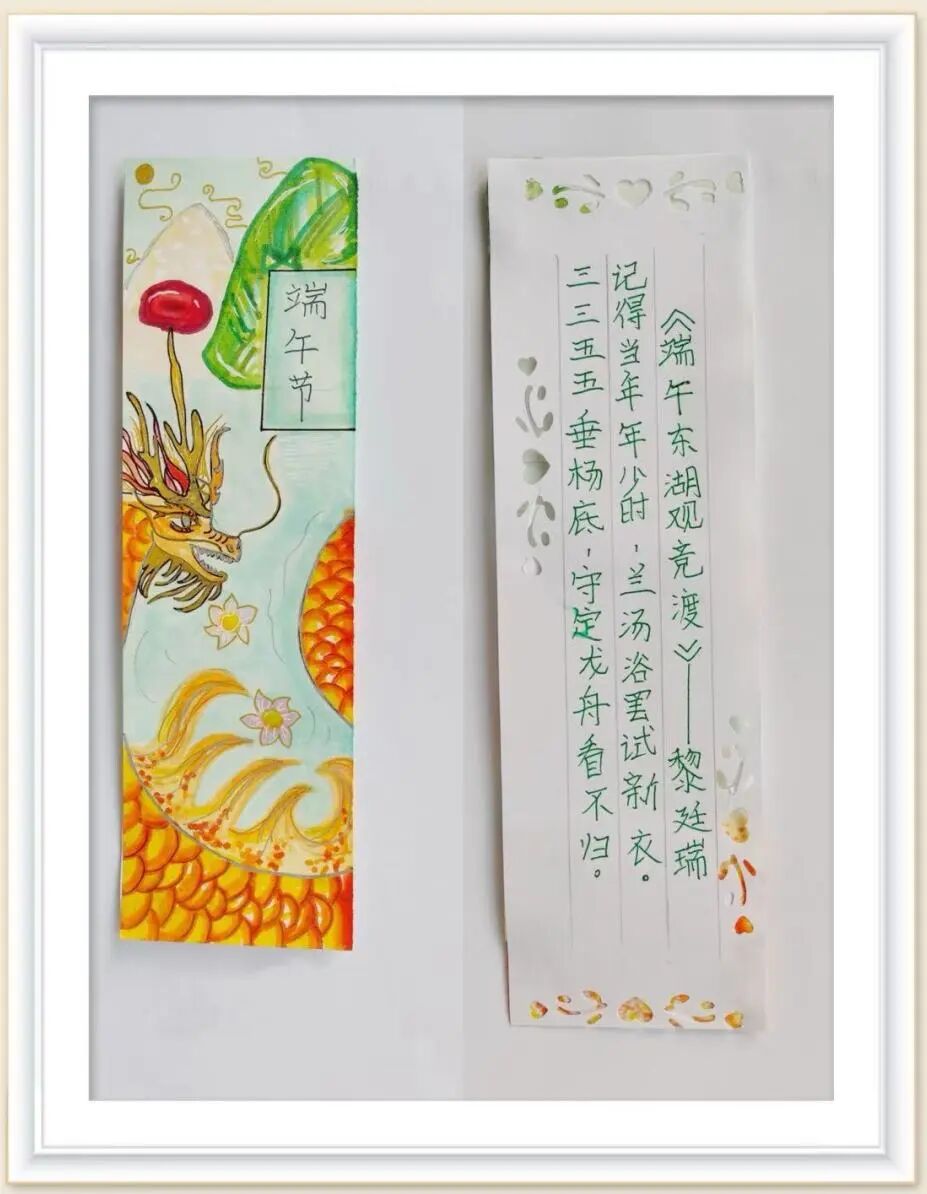 端午节
《端午东湖观竞渡》——黎廷瑞
记得当年年少时，兰汤浴罢试新衣。
三三五五垂杨底，守定龙舟看不归。